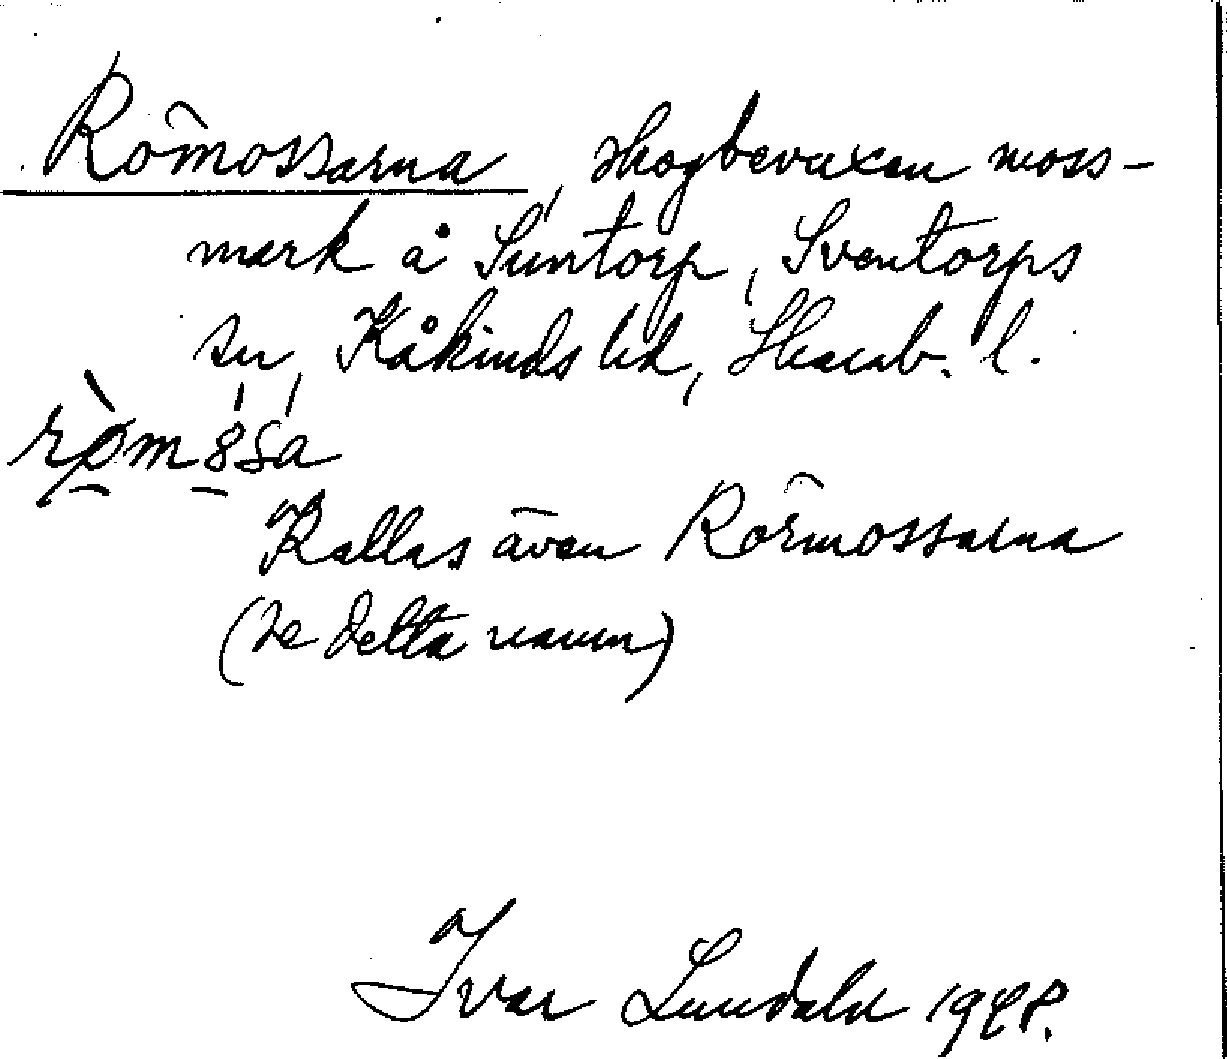 Römossarna, skogbevuxen moss-
mark å Suntorp, Sventorps
sn, Kåkinds hd, Skarab. l.
Kallas även Rörmossarna
(se detta namn)
Ivar Lundahl 1948.